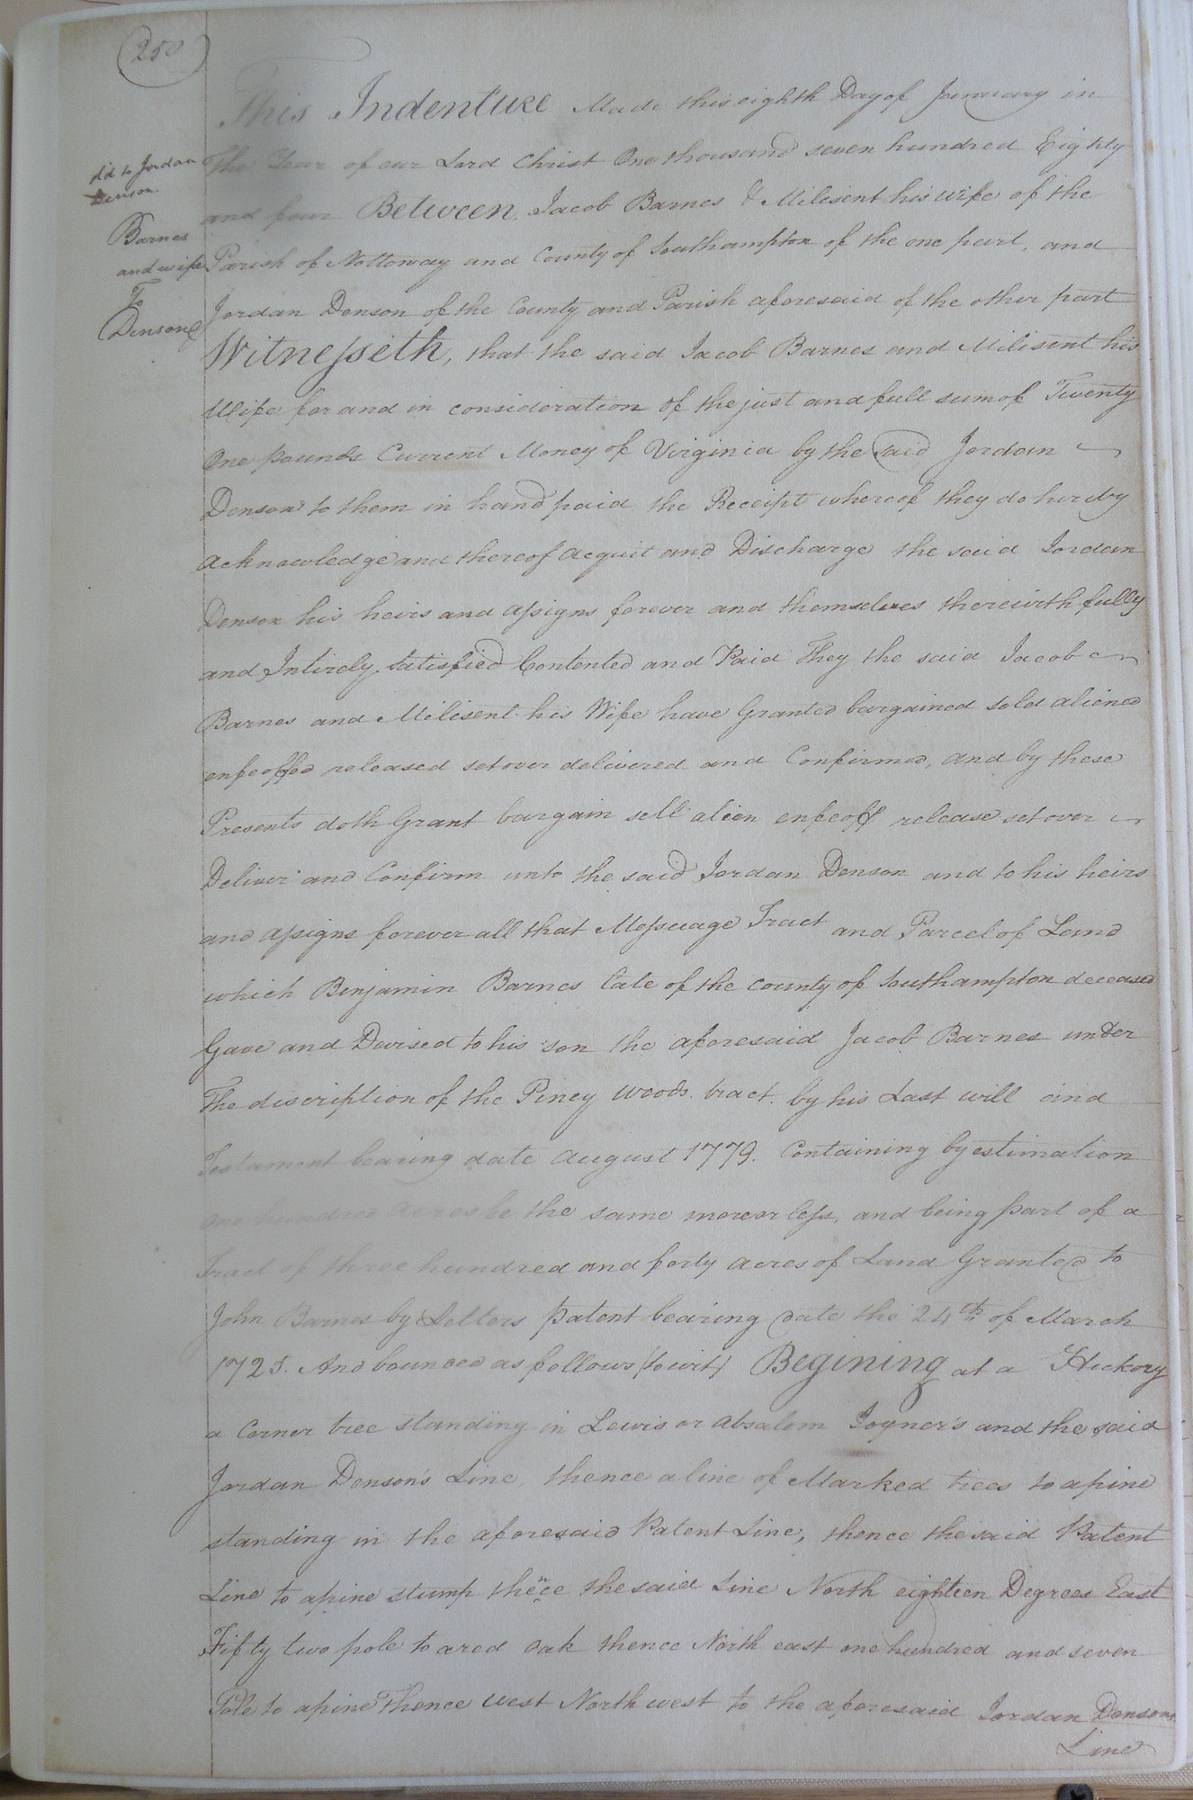 250
This Indenture Made this eighth Day of January in
the Year of our Lord Christ One thousand seven hundred Eighty
and four Between Jacob Barnes & Milisent his Wife of the
Parish of Nottoway and County of Southampton of the one part, and
Jordan Denson of the County and Parish aforesaid of the other part
Witnesseth, that the said Jacob Barnes and Milisent his
Wife for and in consideration of the just and full sum of Twenty
One pounds Current Money of Virginia by the said Jordan
Denson to them in hand paid the Receipt whereof they do hereby
acknowledge and thereof acquit and Discharge the said Jordan
Denson his heirs and assigns forever and themselves therewith fully
and Intirely satisfied Contented and Paid They the said Jacob
Barnes and Milisent his Wife have Granted bargained sold aliened
enfeoffed released setover delivered and Confirmed, and by these
Presents doth Grant bargain sell alien enfeoff release setover
Deliver and Confirm unto the said Jordan Denson and to his heirs
and assigns forever all that Messuage Tract and Parcel of Land
which Benjamin Barnes late of the county of Southampton deceased
Gave and Devised to his son the aforesaid Jacob Barnes under
The discription of the Piney woods tract. by his Last will and
Testament bearing date August 1779. Containing by estimation
one hundred acres be the same more or less, and being part of a
Tract of three hundred and forty acres of Land Granted to
John Barnes by Letters patent bearing date the 24th of March
1725. And bounded as follows (to wit) Begining at a Hickory
a Corner tree standing in Lewis or Absalom Joyner's and the said
Jordan Denson's Line, thence a line of Marked trees to a pine
standing in the aforesaid Patent Line, thence the said Patent
Line to a pine stump thence the said Line North eighteen Degrees East
Fifty two pole to a red oak thence North east one hundred and seven
Pole to a pine Thence West North west to the aforesaid Jordan Densons
Line
dd to Jordan
Denson.
Barnes
and wife
To
Denson